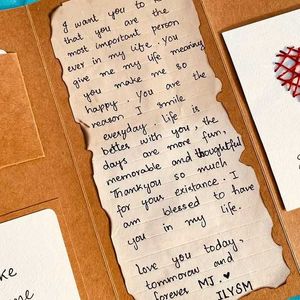 I want you to
that you are the
most important person
ever in my life. You
give me my life meaning
you make me so
happy. You are the
reason I smile
everyday. life is
better with you, the
days are more fun,
memorable and thoughtful
Thankyou so much
for your existance. I
am blessed to have
you in my life.
Love you today,
tommorow and
forever MJ. ♥
ILYSM
ke
me